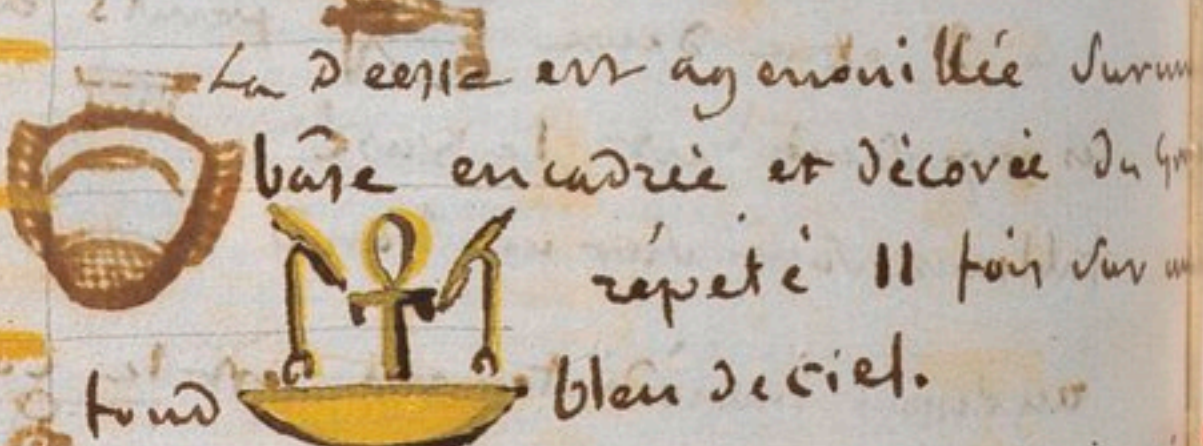 La Déesse est agenouillée sur un
bâse encadrée et décorée du
répeté 11 fois sur
fond bleu de ciel.